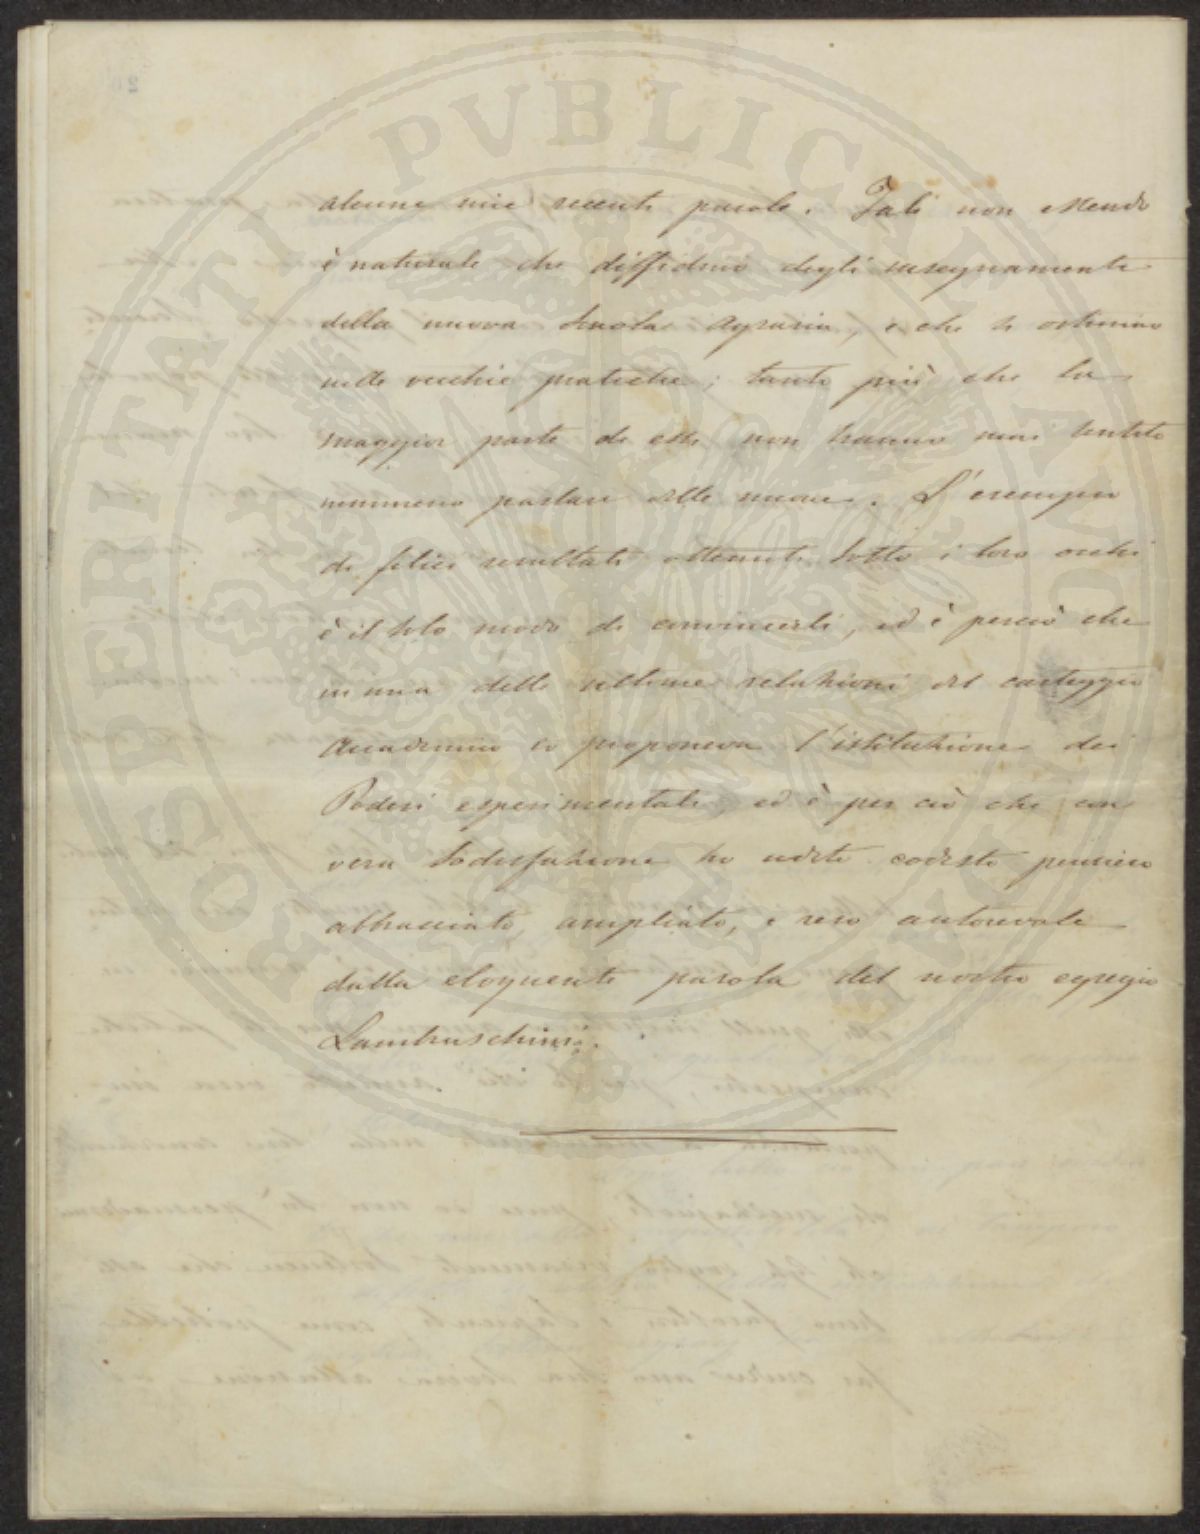 alcune mie recenti parole. Tali non essendo
è naturale che diffidino degli insegnamenti
della nuova Scuola Agraria, e che si ostinino
nelle vecchie pratiche; tanto più che la
maggior parte di essi non hanno mai sentito
nemmeno parlare delle nuove. L'esempio
di felici resultati ottenuti sotto i loro occhi
è il solo modo di convincerli, ed è perciò che
in una delle ultime relazioni del carteggio
Accademico io proponeva l'istituzione dei
Poderi esperimentali, ed è per ciò che con
vera sodisfazione ho udito codesto pensiero
abbracciato, ampliato, e reso autorevole
dalla eloquente parola del nostro egregio
Lambruschini.
PROSPERITATI PVBLICAE AVGENDAE